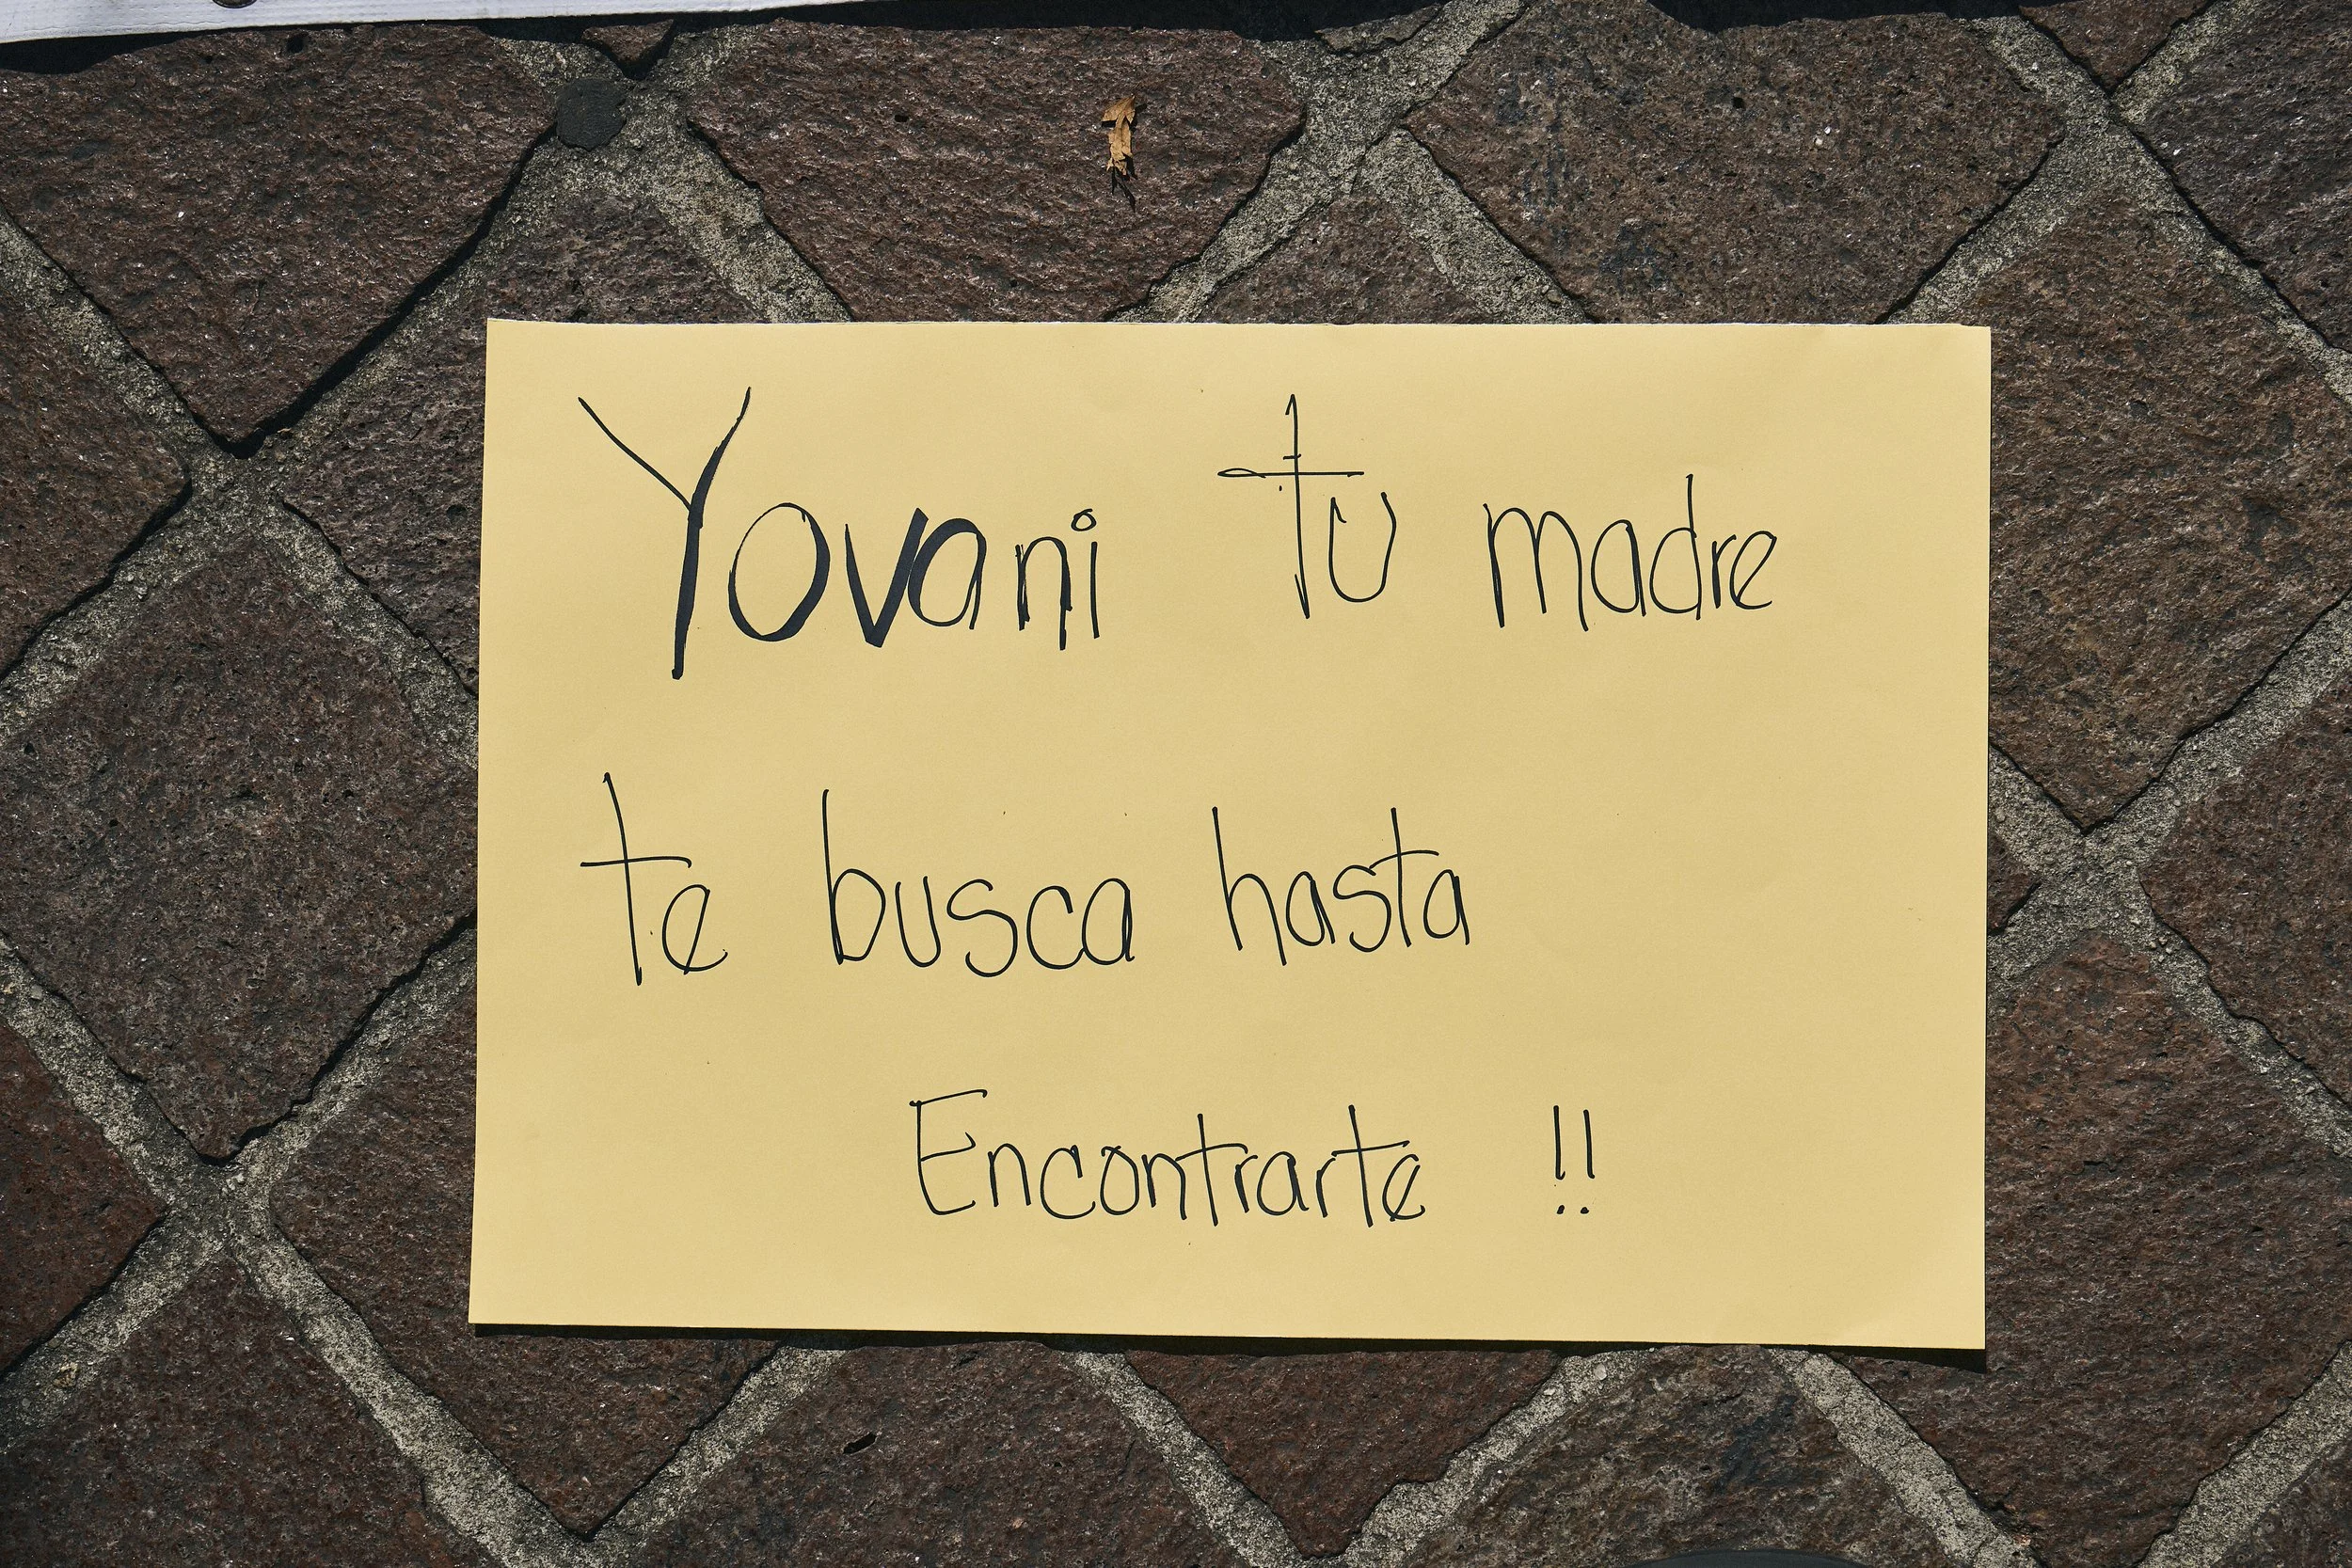 Yovani tu madre
te busca hasta
Encontrarte !!